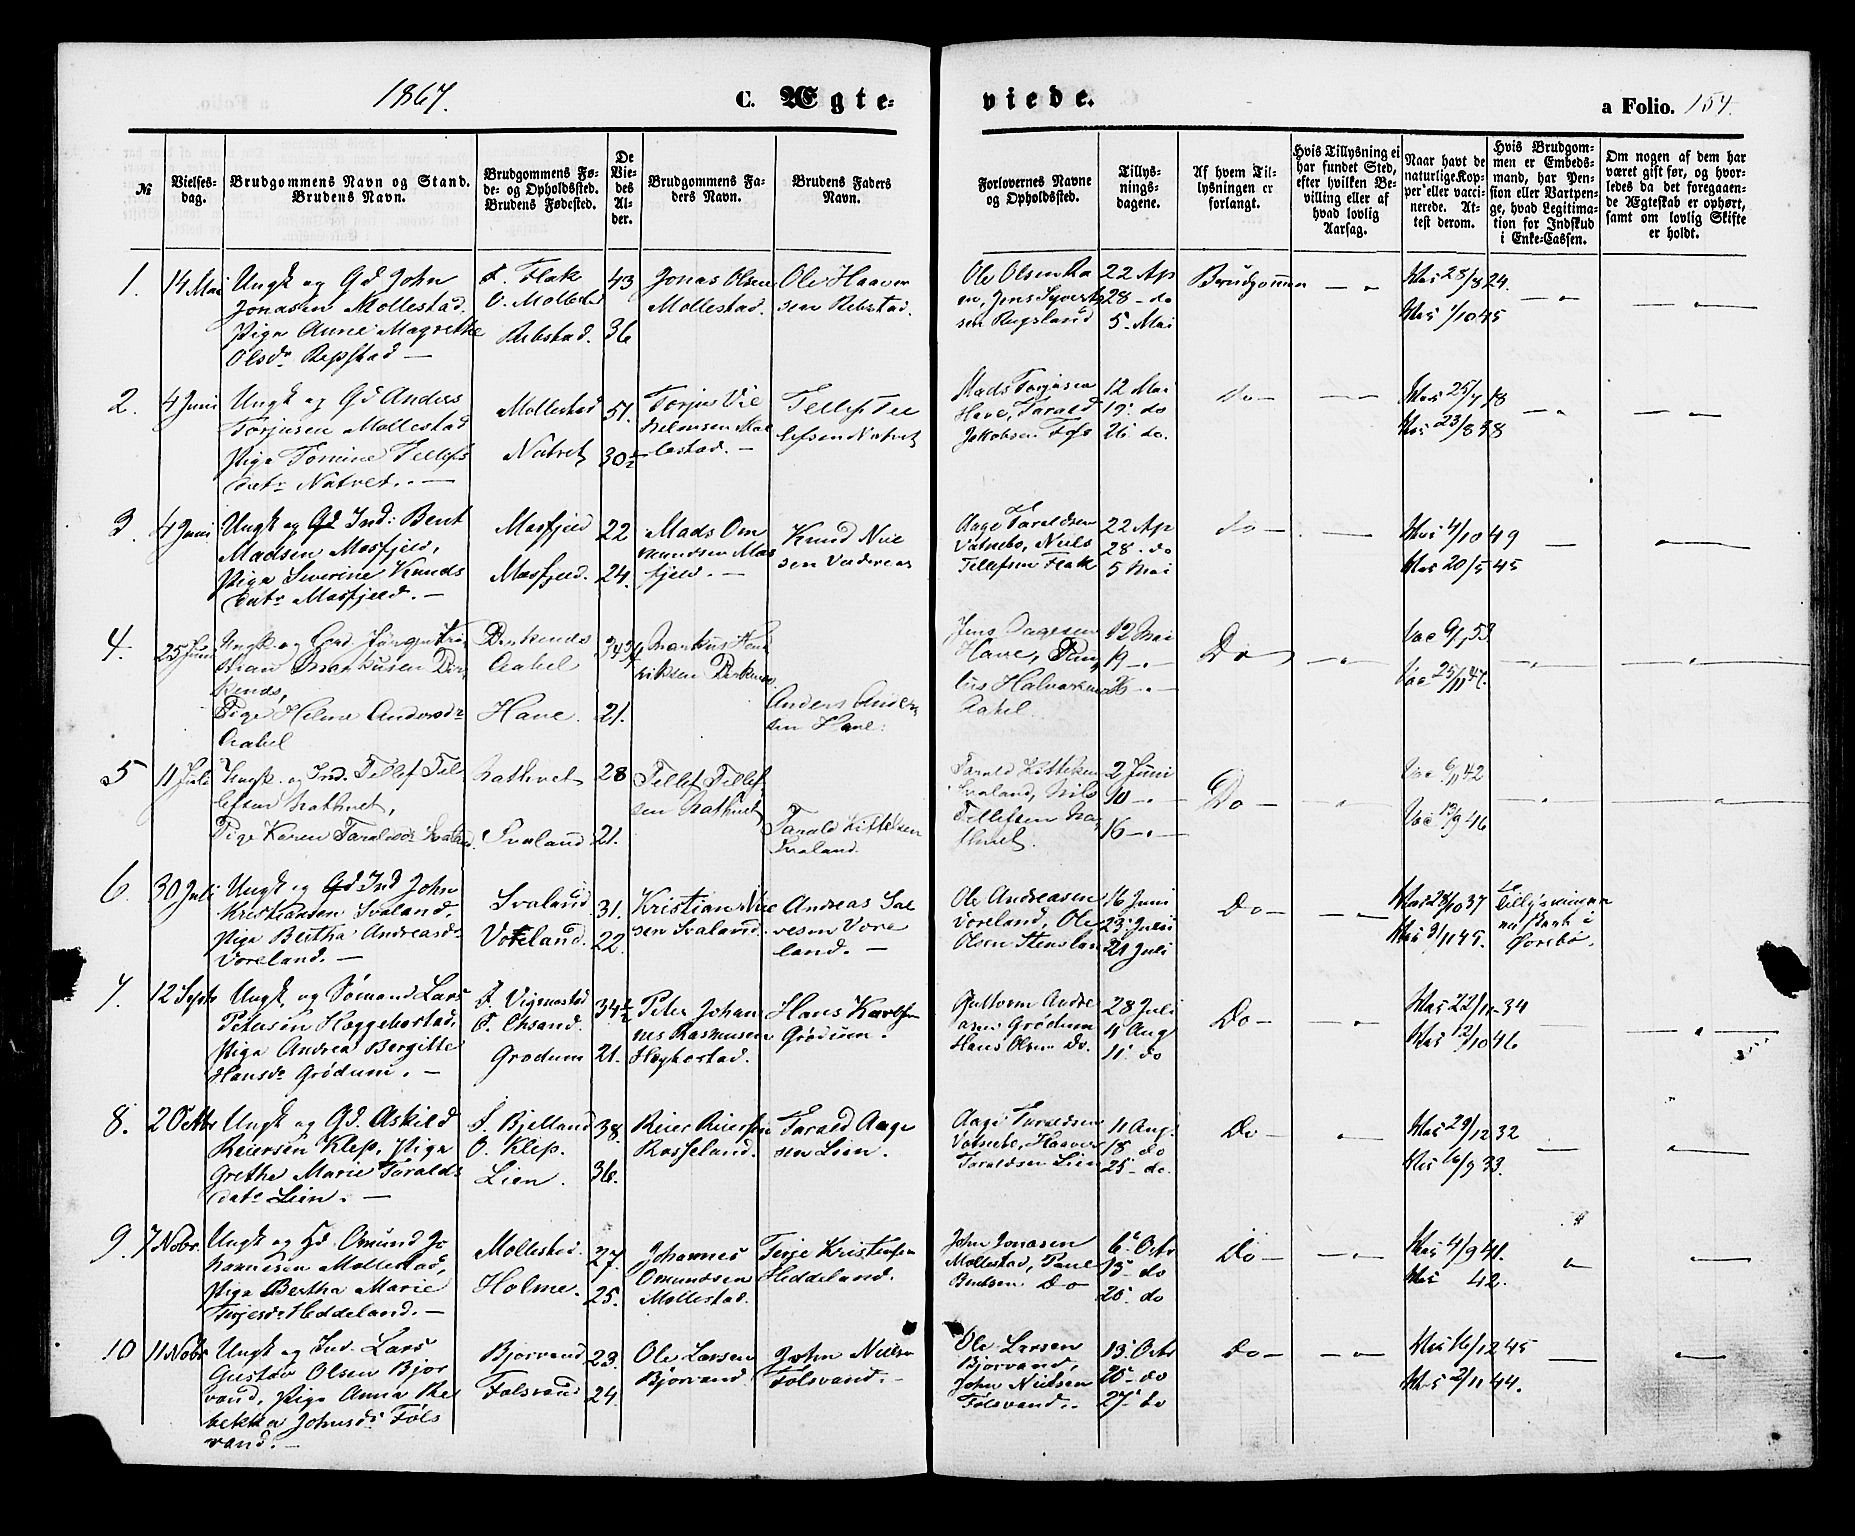 1867.
C. Ægte-
viede.
a Folio. 154.
№
Vielses-
dag.
Brudgommens Navn og Stand.
Brudens Navn.
Brudgommens Fø-
de- og Opholdssted.
Brudens Fødested.
De
Vie-
des
Al-
der.
Brudgommens Fa-
ders Navn.
Brudens Faders
Navn.
Forlovernes Navne
og Opholdssted.
Tillys-
nings-
dagene.
Af hvem Til-
lysningen er
forlangt.
Hvis Tillysning ei
har fundet Sted,
efter hvilken Be-
villing eller af
hvad lovlig
Aarsag.
Naar havt de
naturlige Kop-
per eller vacci-
nerede. At-
test derom.
Hvis Brudgom-
men er Embeds-
mand, har Pen-
sion eller Vartpen-
ge, hvad Legitima-
tion for Indskud
i Enke-Cassen.
Om nogen af dem har
været gift før, og hvor-
ledes da det foregaaen-
de Ægteskab er ophørt,
samt om lovlig Skifte
er holdt.
1. 14 Mai
Ungk og Gd John
Jonasen Mollestad.
Pige Anne Magrethe
Olsdr Repstad —
F. Flak
O. Mollestad
Rebstad.
43
36
Jonas Olsen
Mollestad.
Ole Haavor
sen Rebstad.
Ole Olsen Ra
m, Jens Syverts
sen Rugsland
22 Ap
28 - do
5. Mai
Brudgommen
23/8 24.
1/10 45
2. 4 Juni
Ungk og Gd Anders
Torjusen Mollestad
Pige Tomine Tellefs
datr Natvet. —
Mollestad
Natvet
51.
30½
Torjus Vil
helmsen Mol
lestad. —
Tellef Tel
lefsen Natvet
Mads Torjusen
Have, Tarald
Jakobsen Fos
12 Mai
19. do
26. do.
do —
25/7 18
23/8 38
3. 4 Juni
Ungk og Ind: Bent
Madsen Mosfjeld,
Pige Severine Knuds
datr Mosfjeld. —
Mosfjeld
Mosfjeld.
22
24.
Mads Om
mundsen Mos
fjeld. —
Knud Niel
sen
Aage Taraldsen
Vatnebo, Niels
Tellefsen Flak
22 Ap
28. do
5 Mai
do —
4/10 49
20/5 45
4. 25 Juni
Ungk. og Grd. Jørgen Kri-
stian Markusen Birk-
enes,
Pige Helene Andersdr
Aabel
Birkenes
Aabel
Have.
21.
Markus Hen
riksen Birkenes
Anders Ander
sen Have.
Jens Aagesen
Have, Paul
us Halvorsen
Aabel.
12 Mai
19 — " —
26 — " —
Do
Vac 6/1 53.
Vac 25/11 47.
5 11 Juli
Ungk. og Ind. Tellef Tel-
lefsen Nathvet,
Pige Karen Taraldsdr Svaland.
Nathvet
Svaland
28
21.
Tellef Tellef-
sen Nathvet
Tarald Kittelsen
Svaland.
Tarald Kittelsen
Svaland, Nils
Tellefsen Na-
thvet.
2 Juni
10 — " —
16 — " —
Do —
Vac 6/11 42
Vac 12/9 46
6. 30 Juli
Ungk og Ind John
Kristiansen Svaland.
Pige Bertha Andreasdr
Voreland. —
Svaland
Voreland.
31.
22.
Kristian Niel
sen Svaland.
Andreas Sal
vesen Vore
land. —
Ole Andreasen
Voreland, Ole
Olsen Stensland
16 Juni
23 Juli
21 Juli
Do —
23/10 37
3/11 45.
Tillysningen
Øvrebø.
7. 12 Septr
Ungk. og Sømand Lars
Petersen Hæggebostad,
Pige Andrea Bergitte
Hansdr Grødum. —
F. Vigmostad
O. Chsand.
Grødum
34½
21.
Peter Johan
nes Rasmussen
Hægbostad.
Hans Karlsen
Grødum.
Guttorm Andre
asen Grødum
Hans Olsen Do.
28 Juli
4 Aug
11. do
Do —
22/11 34
12/10 46
8. 2 Octbr
Ungk og Gd. Askild
Reiersen Klep, Pige
Grethe Marie Taralds
datr Lien. —
F. Bjelland
O. Klep.
Lien.
38.
36.
Reier Reiersen
Rosseland.
Tarald Aage
sen Lien.
Aage Taraldsen
Vatnebo, Haavor
Taraldsen Lien
11 Aug.
18. do
25 - do.
Do —
29/12 32
16/9 33.
9. 7 Nobr.
Ungk og Gd. Omund Jo
hannesen Mollestad,
Pige Bertha Marie
Terjesdr Heddeland. —
Mollestad.
Holme.
27.
25.
Johannes
Omundsen
Mollestad.
Terje Kristensen
Heddeland.
John Jonasen
Mollestad, Paul
Bentsen Do
6. Octr
13 - do
20. do
Do —
4/9 41.
42.
10 11 Nobr
Ungk og Ind. Lars
Gustav Olsen Bjor
vand, Pige Anna Re
bekka Johnsdr Føls
vand. —
Bjorvand
Følsvand
23.
24.
Ole Larsen
Bjorvand.
John Nielsen
Følsvand. —
Ole Larsen
Bjorvand,
John Nielsen
Følsvand.
13. Octr
20 - do
27. do
Do —
16/12 45
2/11 44.